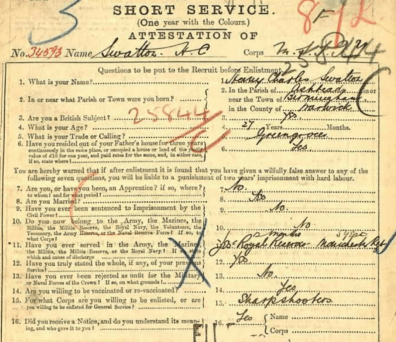 SHORT SERVICE.
(One year with the Colours.)
ATTESTATION OF
No. 24593 Name Swatton. H.C Corps
25844
Questions to be put to the Recruit before Enlistment.
1. What is your Name? 1. Henry Charles Swatton
2. In or near what Parish or Town were you born? 2. In the Parish of
near the Town of Birmingham
in the County of Warwick
3. Are you a British Subject? 3. Yes
4. What is your Age? 4. 27 Years Months.
5. What is your Trade or Calling? 5. Greengrocer
6. Have you resided out of your Father's house for three years 6. Yes
continuously in the same place, or occupied a house or land of the yearly
value of £10 for one year, and paid rates for the same, and, in either case,
if so, state where?
You are hereby warned that if after enlistment it is found that you have given a wilfully false answer to any of the
following seven questions, you will be liable to a punishment of two years' imprisonment with hard labour.
7. Are you, or have you been, an Apprentice? if so, where? 7. No.
to whom? and for what period?
8. Are you Married? 8. No
9. Have you ever been sentenced to Imprisonment by the 9. No
Civil Power?
10. Do you now belong to the Army, the Marines, 10. No
the Militia, the Militia Reserve, the Royal Navy, the Volunteers, the
Yeomanry, the Army Reserve, or the Naval Reserve Force? If so,
11. Have you ever served in the Army, the Marines,
the Militia, the Militia Reserve, or the Royal Navy? If so, state
which and cause of discharge
Royal Reserve Manchester Regt
12. Have you truly stated the whole, if any, of your previous 12. Yes
Service?
13. Have you ever been rejected as unfit for the Military 13. No.
or Naval Forces of the Crown? If so, on what grounds?
14. Are you willing to be vaccinated or re-vaccinated? 14. Yes
15. For what Corps are you willing to be enlisted, or are 15. Sharpshooters
you willing to be enlisted for General Service?
16. Did you receive a Notice, and do you understand its meaning, 16. Yes Name
and who gave it to you? Corps